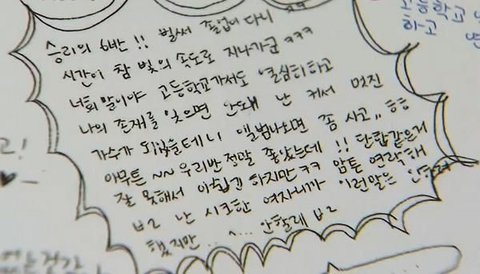 승리의 6반!! 벌써 졸업이 다니 ㅋㅋ
시간이 참 빛의 속도로 지나가군 ㅋㅋㅋ
너희 말이야 고등학교가서도 열심히하고
나의 존재를 잊으면 안돼 난 커서 멋진
가수가 되있을테니 앨범나오면 좀 사고,, ㅎㅎ
아무튼 ~~ 우리반 정말 좋았는데 !! 단합같은거
잘 못해서 아쉽긴 하지만 ㅋㅋ 암튼 연락해
ㅂ2 난 시크한 여자니까 이런말은 안할래
했지만 ... ㅡ... 안할래 ㅂ2
고등학교
하고